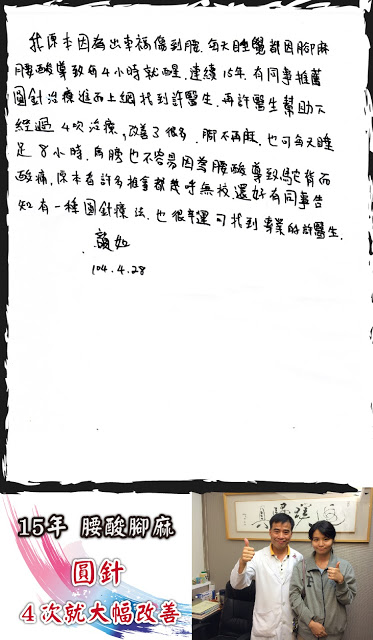 我原本因為出車禍傷到腰.每天睡覺都因腳麻
腰酸導致每4小時就醒.連續15年.有同事推薦
圓針治療進而上網找到許醫生.再許醫生幫助下
經過4次治療,改善了很多.腳不再麻.也可每天睡
足8小時.肩膀也不容易因為腰酸導致駝背而
酸痛,原本看許多推拿都幾乎無校.還好有同事告
知有一種圓針療法.也很幸運可找到專業的許醫生.
104.4.28
15年 腰酸腳麻
圓針
4次就大幅改善